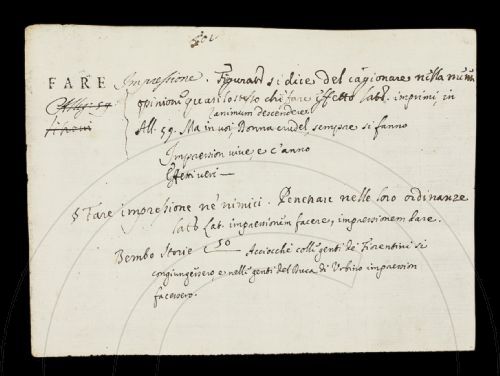 FARE Impressione. Figurat. si dice del cagionare nella mente
opinioni quasi lo stesso che fare Effetto lat. imprimi, in
animum descendere
All. 59. Ma in voi Donna crudel, sempre si fanno
Impression vive, e c'anno
Effetti veri —
§ Fare impressione ne' nimici. Penetrare nelle loro ordinanze
lat. impressionem facere, impressionem dare.
Bembo Storie 50 Acciocchè colle genti de' Fiorentini si
congiungessero e nelle genti del Duca di Urbino impression
facessero.